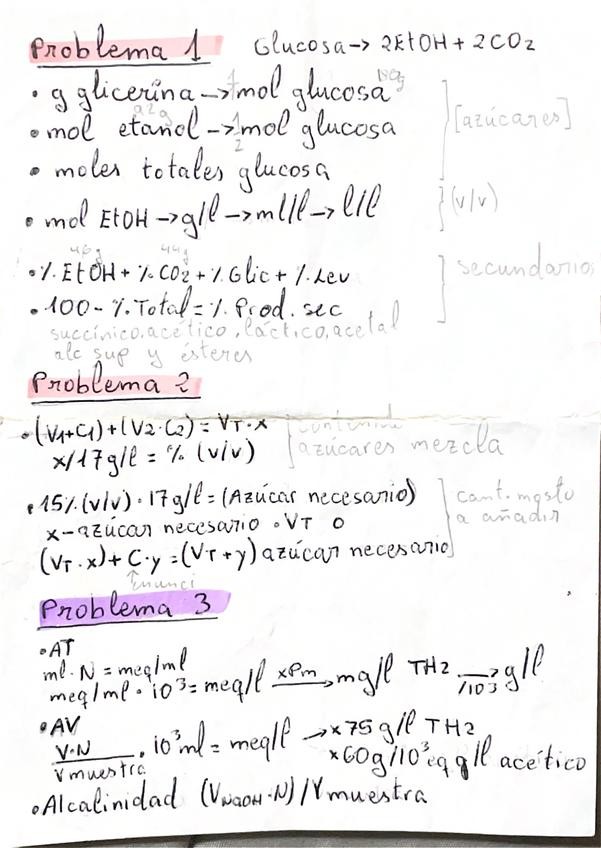 Problema 1 Glucosa→ 2EtOH + 2CO2
180g
• g glicerina → 1 mol glucosa
92g
• mol etanol → 1/2 mol glucosa [azúcares]
• moles totales glucosa
• mol EtOH → g/l → ml/l → l/l (v/v)
46g 44g
• % EtOH + % CO2 + % Glic + % Lev secundarios
• 100 - % Total = % Prod. sec
succínico, acético, láctico, acetal
alc sup y ésteres
Problema 2
• (V1+C1)+(V2·C2) = VT·x contenido
x/17g/l = % (v/v) azúcares mezcla
• 15% (v/v) · 17g/l = (Azúcar necesario) cant. mosto
x-azúcar necesario · VT o a añadir
(VT·x)+C·y = (VT+y) azúcar necesario
↑enunci
Problema 3
• AT
ml·N = meq/ml
meq/ml · 10³ = meq/l xPm→ mg/l TH2 /103→ g/l
• AV
V·N/Vmuestra · 10³ml = meq/l → x75 g/l TH2
x60g/10³eq g/l acético
• Alcalinidad (VNaOH·N)/Vmuestra